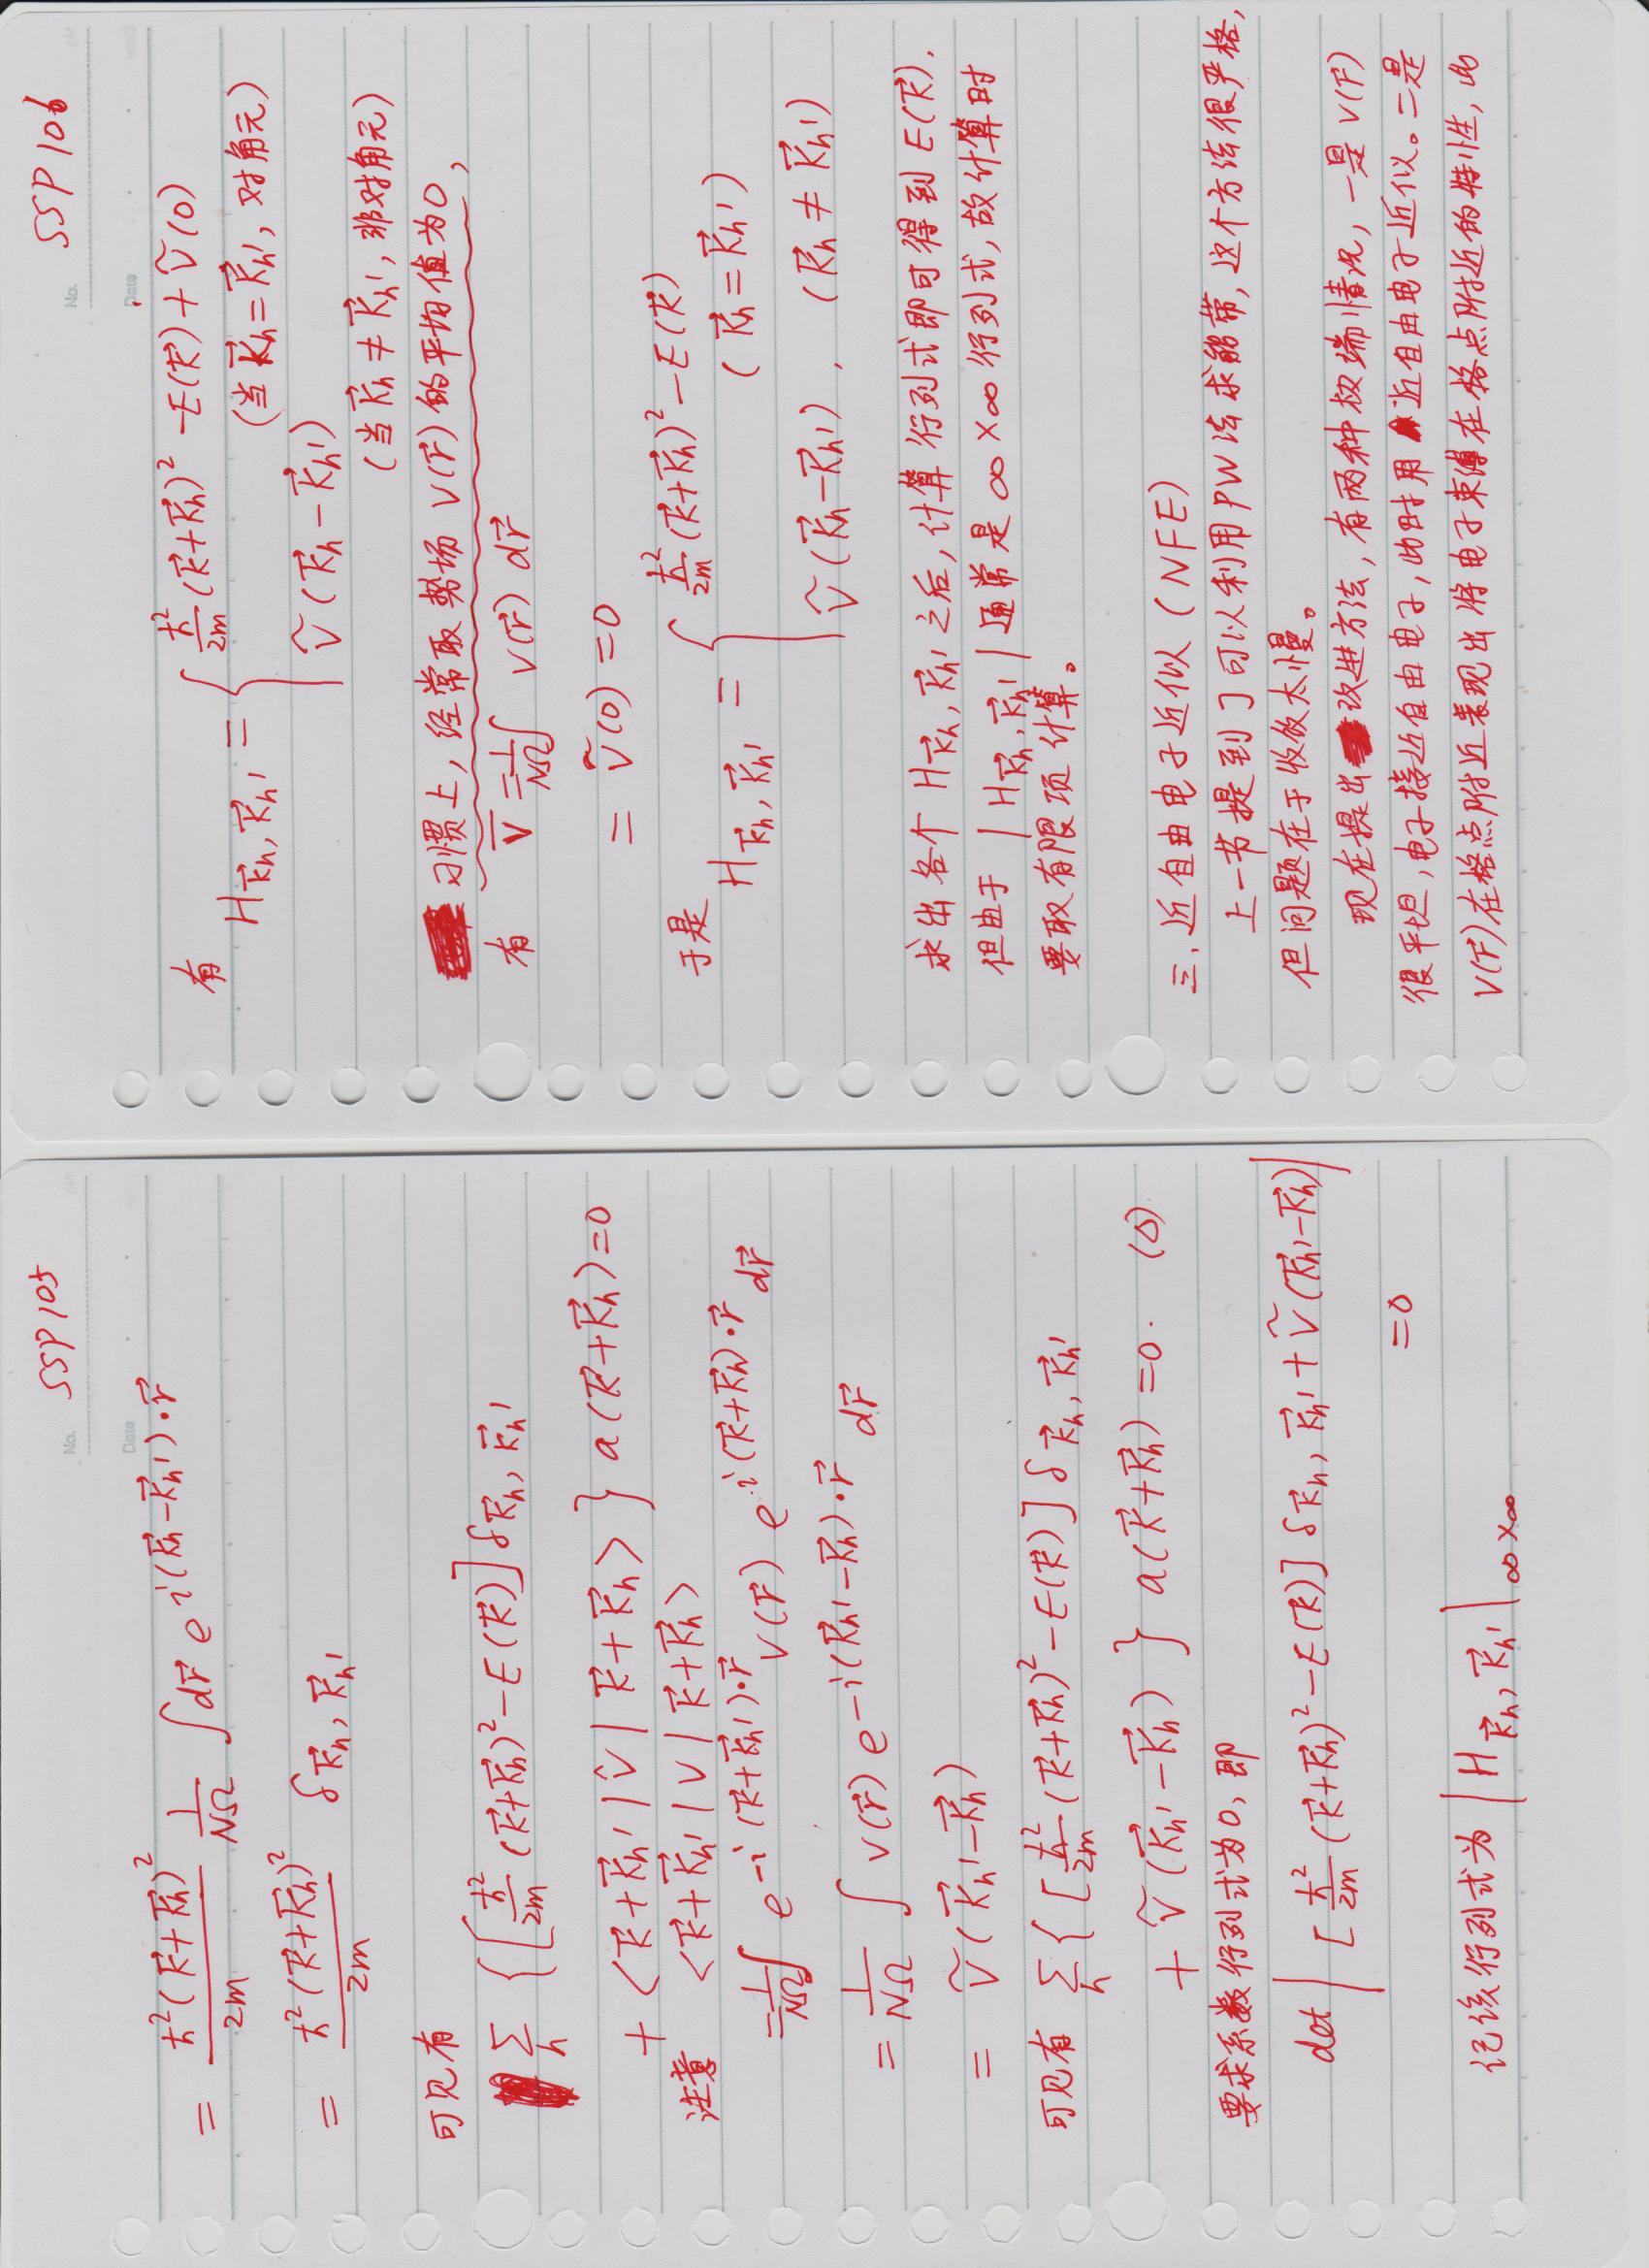 No. SSP 105
Date
= ħ²(k⃗+K⃗h)²/2m 1/NΩ ∫dr⃗ e^{i(K⃗h-K⃗h')·r⃗}
= ħ²(k⃗+K⃗h)²/2m δ_{K⃗h, K⃗h'}
可见有
Σ_h {[ħ²/2m (k⃗+K⃗h)²-E(k⃗)]δ_{K⃗h, K⃗h'}
+ <k⃗+K⃗h'|V̂|k⃗+K⃗h>} a(k⃗+K⃗h)=0
注意 <k⃗+K⃗h'|V|k⃗+K⃗h>
=1/NΩ∫ e^{-i(k⃗+K⃗h')·r⃗} V(r⃗) e^{i(k⃗+K⃗h)·r⃗} dr⃗
= 1/NΩ ∫ V(r⃗) e^{-i(K⃗h'-K⃗h)·r⃗} dr⃗
= Ṽ(K⃗h'-K⃗h)
可见有 Σ_h {[ħ²/2m (k⃗+K⃗h)²-E(k⃗)]δ_{K⃗h, K⃗h'}
+ Ṽ(K⃗h'-K⃗h)} a(k⃗+K⃗h)=0. (Δ)
要求系数行列式为0, 即
det |[ħ²/2m (k⃗+K⃗h)²-E(k⃗)]δ_{K⃗h, K⃗h'}+Ṽ(K⃗h'-K⃗h)|
=0
记该行列式为 |H_{K⃗h, K⃗h'}|_{∞×∞}
No. SSP 106
Date
有 H_{K⃗h, K⃗h'} = { ħ²/2m (k⃗+K⃗h)² -E(k⃗)+Ṽ(0)
(当K⃗h=K⃗h', 对角元)
Ṽ(K⃗h-K⃗h')
(当K⃗h≠K⃗h', 非对角元)
习惯上, 经常取势场V(r⃗)的平均值为0,
有 V̄=1/NΩ∫ V(r⃗) dr⃗
= Ṽ(0) =0
于是 H_{K⃗h, K⃗h'} = { ħ²/2m (k⃗+K⃗h)²-E(k⃗)
(K⃗h=K⃗h')
Ṽ(K⃗h-K⃗h'), (K⃗h≠K⃗h')
求出各个 H_{K⃗h, K⃗h'} 之后, 计算行列式即可得到E(k⃗).
但由于 |H_{K⃗h, K⃗h'}| 通常是∞×∞行列式, 故计算时
要取有限项计算。
三. 近自由电子近似 (NFE)
上一节提到了可以利用PW法求能带, 这个方法很严格,
但问题在于收敛太慢。
现在提出改进方法, 有两种极端情况, 一是V(r⃗)
很平坦, 电子接近自由电子, 此时用近自由电子近似。二是
V(r⃗)在格点附近表现出将电子束缚在格点附近的特性, 此